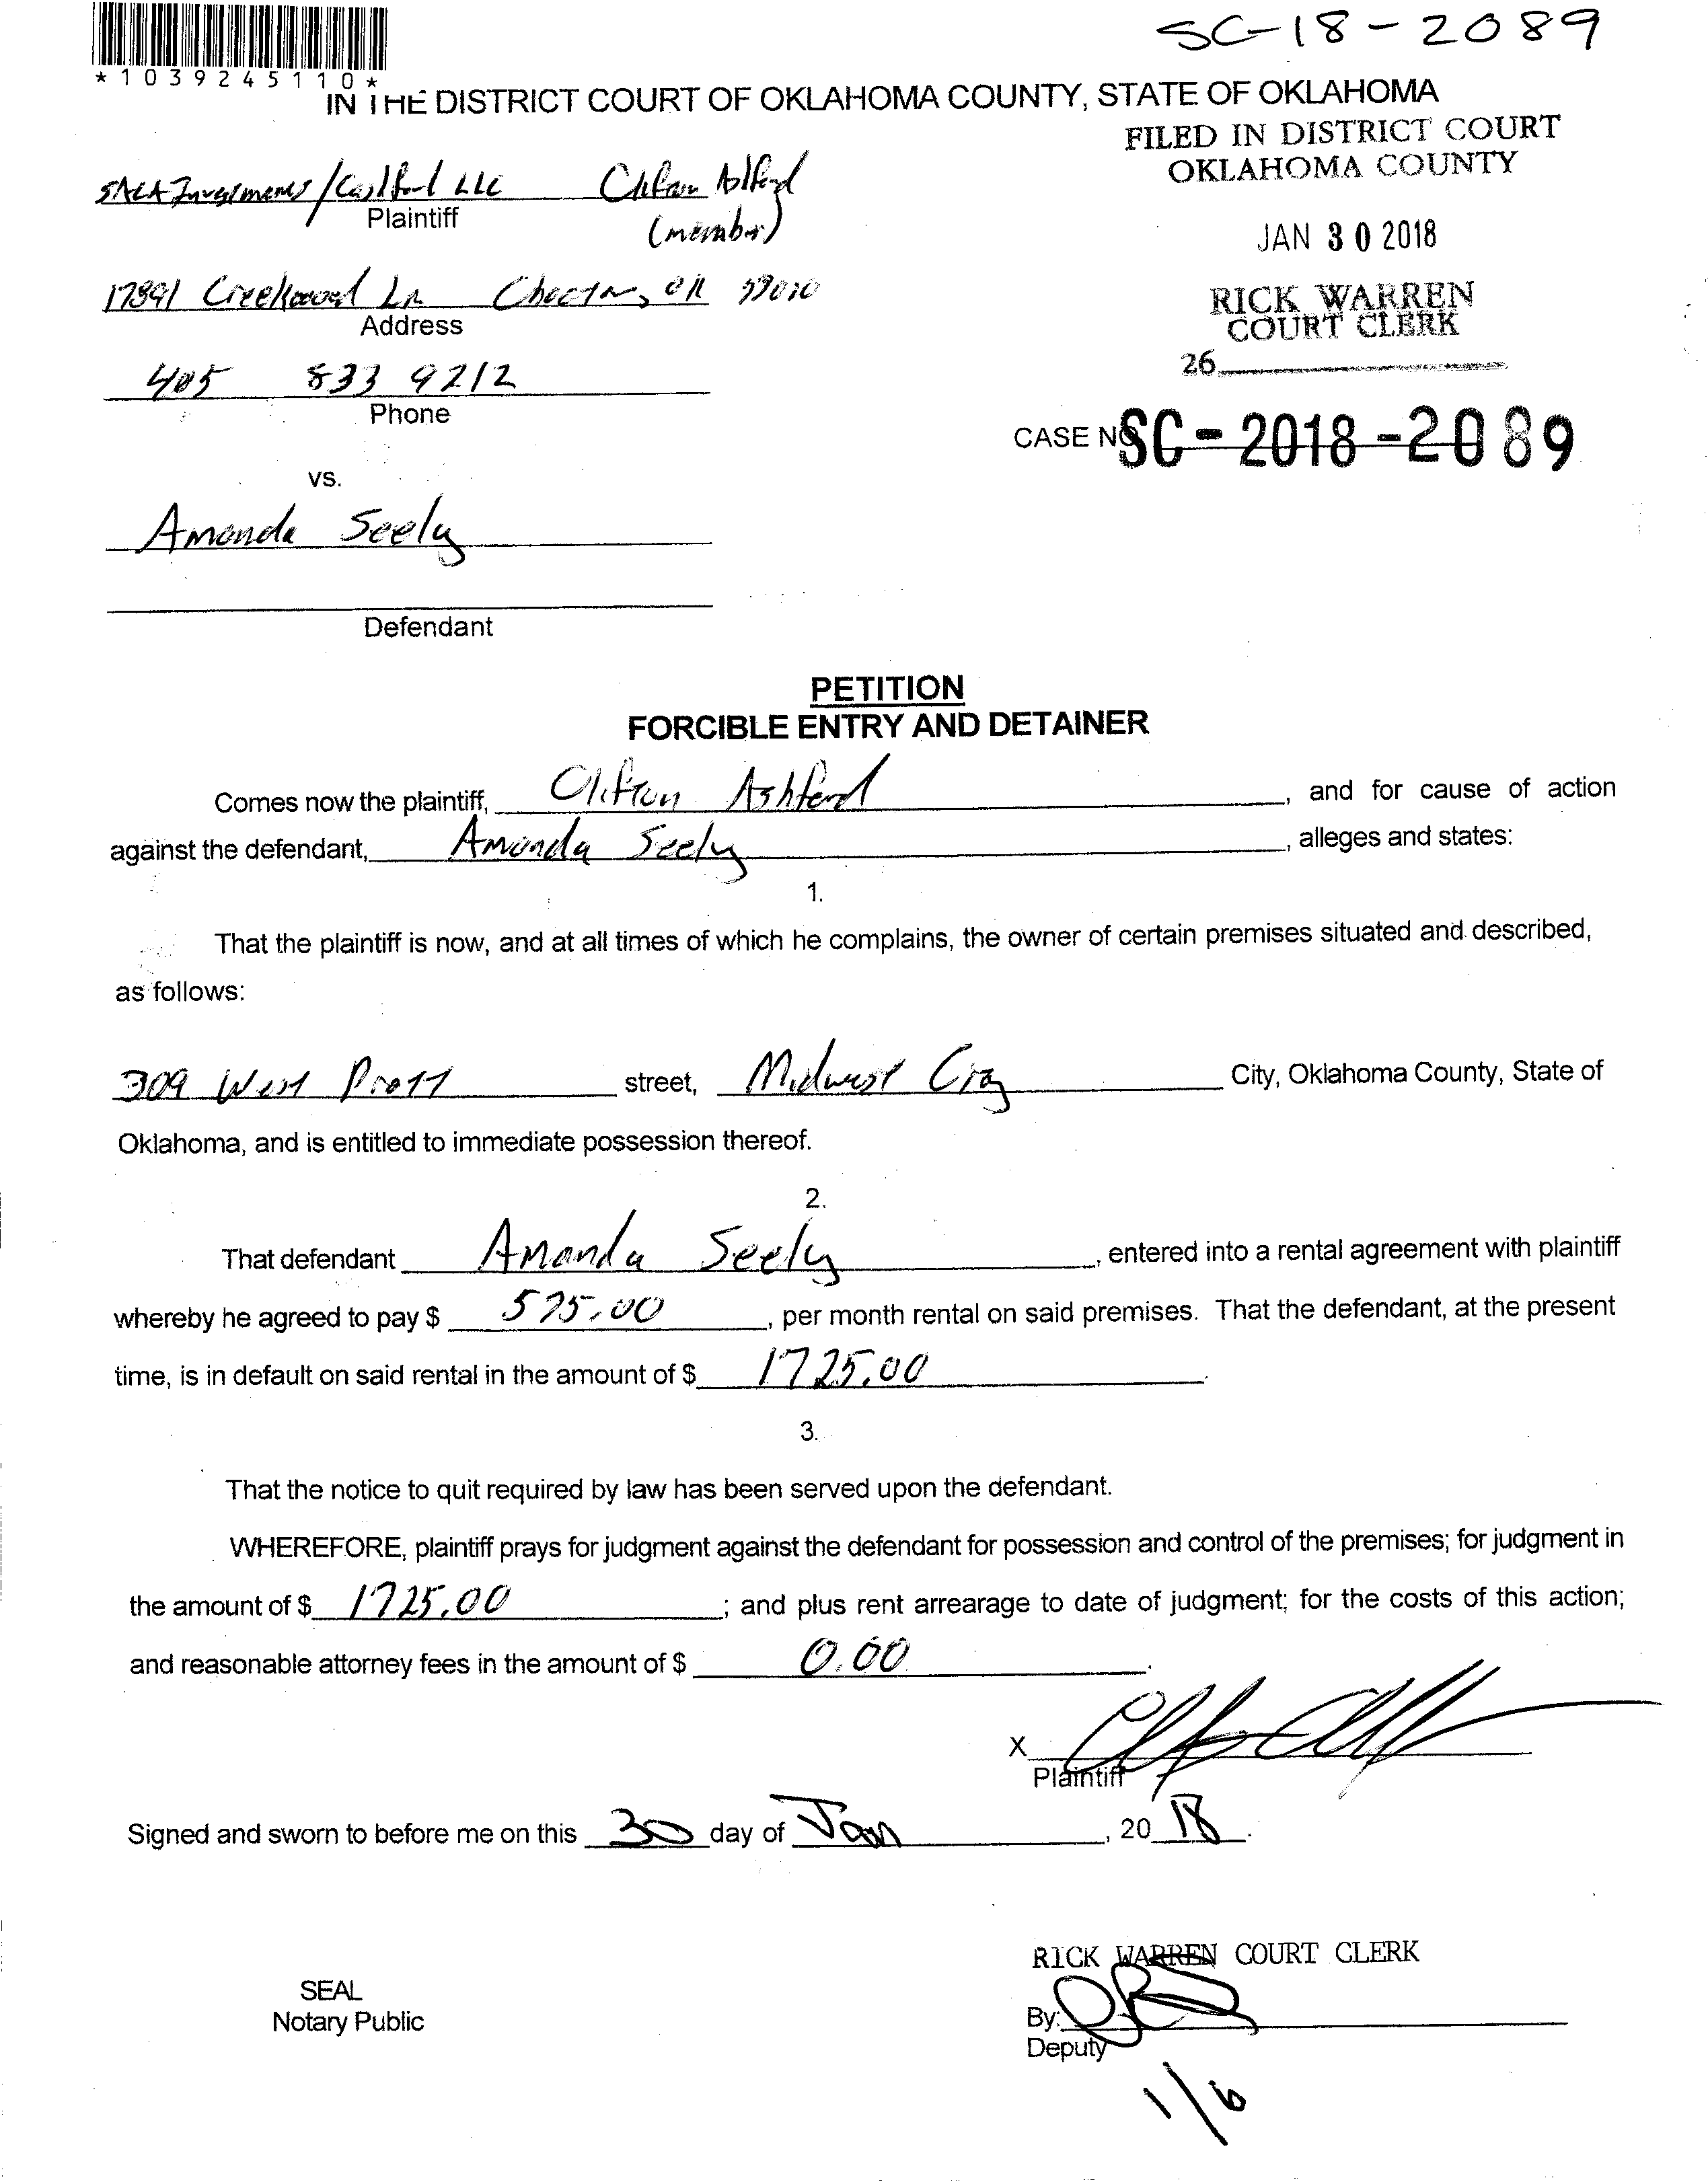 SC-18-2089
*1039245110*
IN THE DISTRICT COURT OF OKLAHOMA COUNTY, STATE OF OKLAHOMA
FILED IN DISTRICT COURT
OKLAHOMA COUNTY
JAN 30 2018
RICK WARREN
COURT CLERK
26
LLC Clifton Ashford
Plaintiff (member)
17891 Creekwood Ln Choctaw, OK
Address
405 833 9212
Phone
CASE NO. SC-2018-2089
vs.
Amanda Seely
Defendant
PETITION
FORCIBLE ENTRY AND DETAINER
Comes now the plaintiff, Clifton Ashford, and for cause of action
against the defendant, Amanda Seely, alleges and states:
1.
That the plaintiff is now, and at all times of which he complains, the owner of certain premises situated and described,
as follows:
309 West street, Midwest City City, Oklahoma County, State of
Oklahoma, and is entitled to immediate possession thereof.
2.
That defendant Amanda Seely, entered into a rental agreement with plaintiff
whereby he agreed to pay $ 575.00, per month rental on said premises. That the defendant, at the present
time, is in default on said rental in the amount of $ 1725.00.
3.
That the notice to quit required by law has been served upon the defendant.
WHEREFORE, plaintiff prays for judgment against the defendant for possession and control of the premises; for judgment in
the amount of $ 1725.00; and plus rent arrearage to date of judgment; for the costs of this action;
and reasonable attorney fees in the amount of $ 0.00.
X
Plaintiff
Signed and sworn to before me on this 30 day of Jan, 20 18.
RICK WARREN COURT CLERK
SEAL
Notary Public
By:
Deputy
1/6